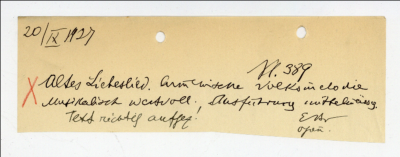 20/IX 1927
Pl. 389
X Altes Liebeslied. Armenische Volksmelodie
Musikalisch wertvoll! Ausführung mittelmässig.
Text richtig aufgez!